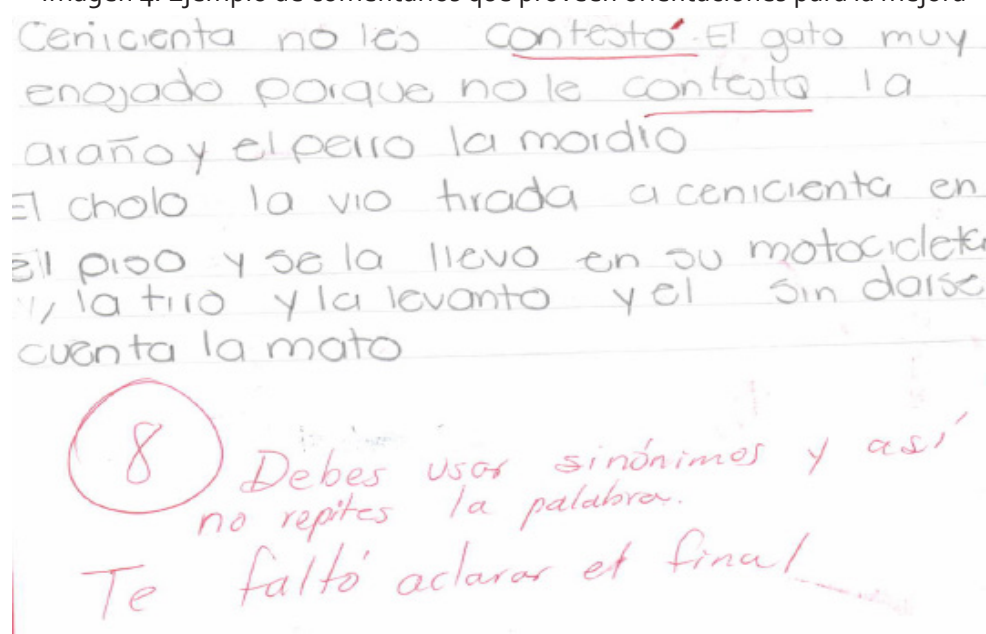 Imagen 4. Ejemplo de comentarios que proveen orientaciones para la mejora
Cenicienta no les contestó. El gato muy
enojado porque no le contesto la
araño y el perro la mordio
El cholo la vio tirada a cenicienta en
el piso y se la llevo en su motocicleta
y la tiro y la levanto y el sin darse
cuenta la mato
8 Debes usar sinónimos y así
no repites la palabra.
Te faltó aclarar el final